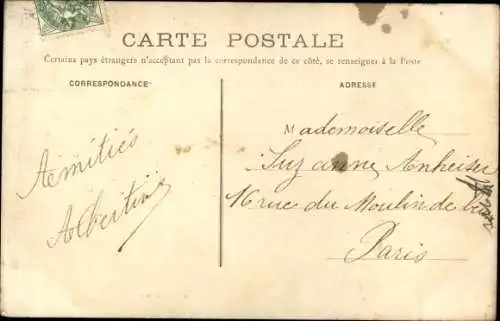 CARTE POSTALE
Certains pays étrangers n'acceptant pas la correspondance de ce côté, se renseigner à la Poste
CORRESPONDANCE
ADRESSE
Amitiés
Albertine
Mademoiselle
Suzanne Anheiser
16 rue du Moulin de
Paris